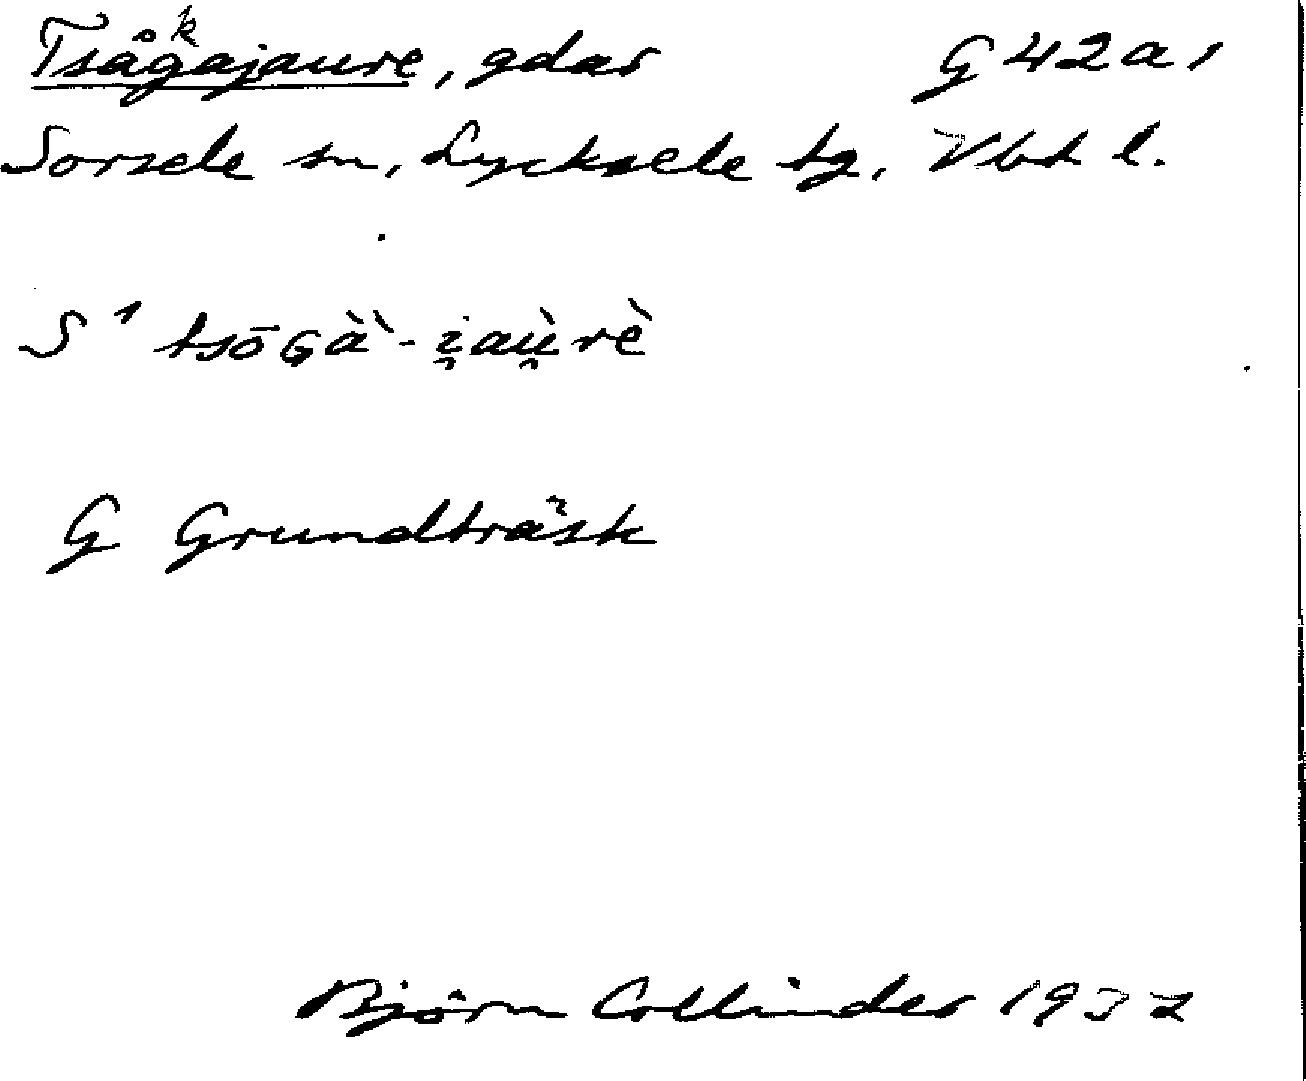 Tsågajaure, gdar G 42 a 1
k
Sorsele sn, Lycksele tg, Vbt l.
S ' tsōGà`-i̯aù̯rè
G Grundträsk
Björn Collinder 1932